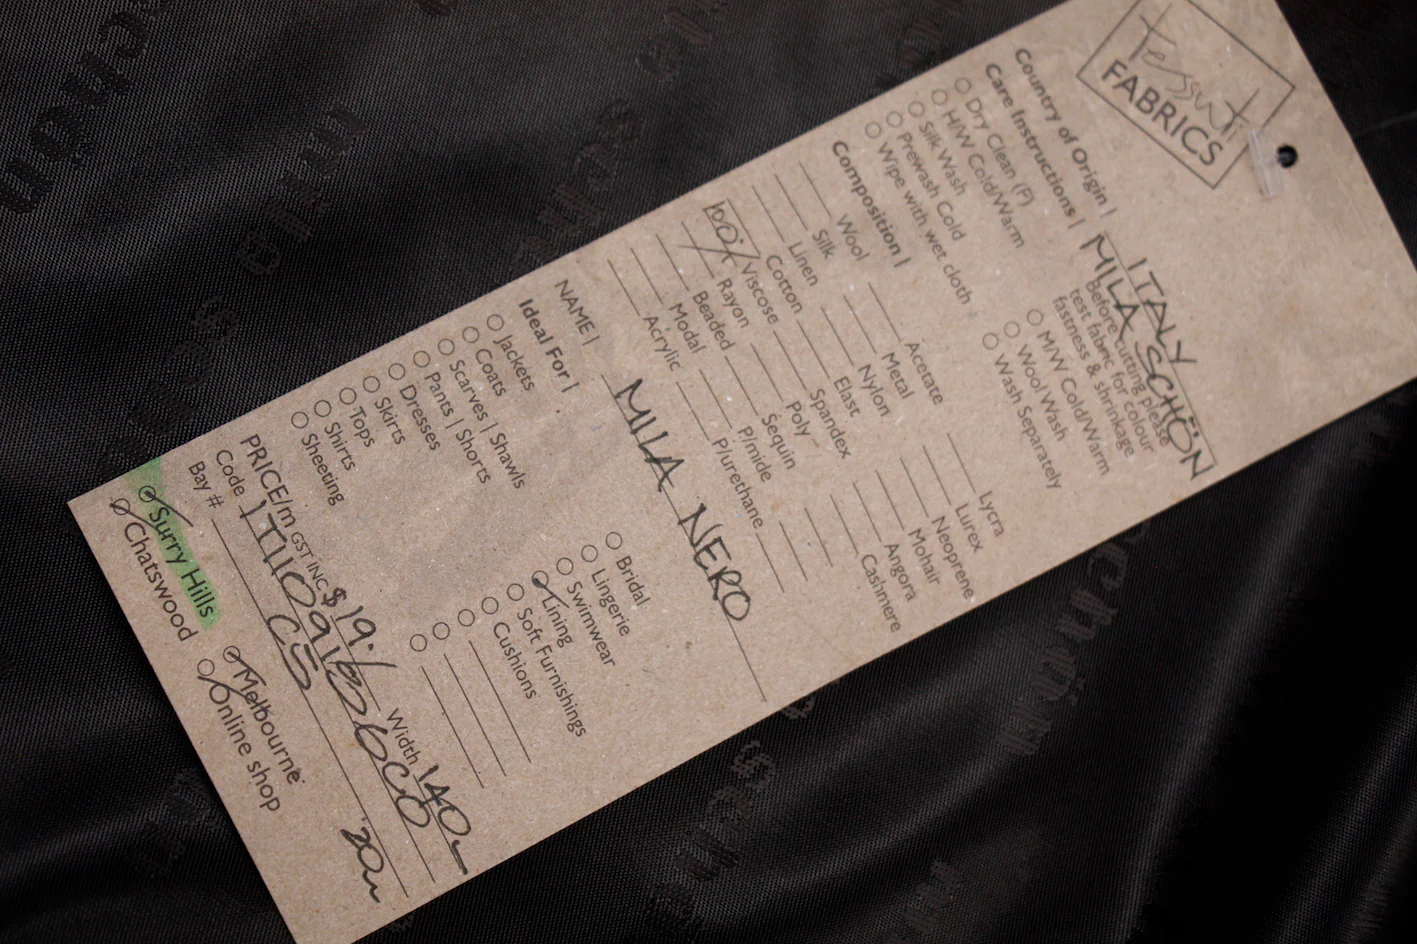 Tessuti
FABRICS
Country of Origin | ITALY
MILA SCHÖN
Care Instructions | Before cutting please
test fabric for colour
fastness & shrinkage
Dry Clean (P)
H/W Cold/Warm
Silk Wash
Prewash Cold
Wipe with wet cloth
M/W Cold/Warm
Wool Wash
Wash Separately
Composition |
Wool
Silk
Linen
Cotton
100% Viscose
Rayon
Beaded
Modal
Acrylic
Acetate
Metal
Nylon
Elast
Spandex
Poly
Sequin
P/mide
P/urethane
Lycra
Lurex
Neoprene
Mohair
Angora
Cashmere
NAME | MILA NERO
Ideal For |
Jackets
Coats
Scarves | Shawls
Pants | Shorts
Dresses
Skirts
Tops
Shirts
Sheeting
Bridal
Lingerie
Swimwear
Lining
Soft Furnishings
Cushions
PRICE/m GST INC $19.- Width 140
Code
Bay # C5 20m
Surry Hills
Chatswood
Melbourne
Online shop